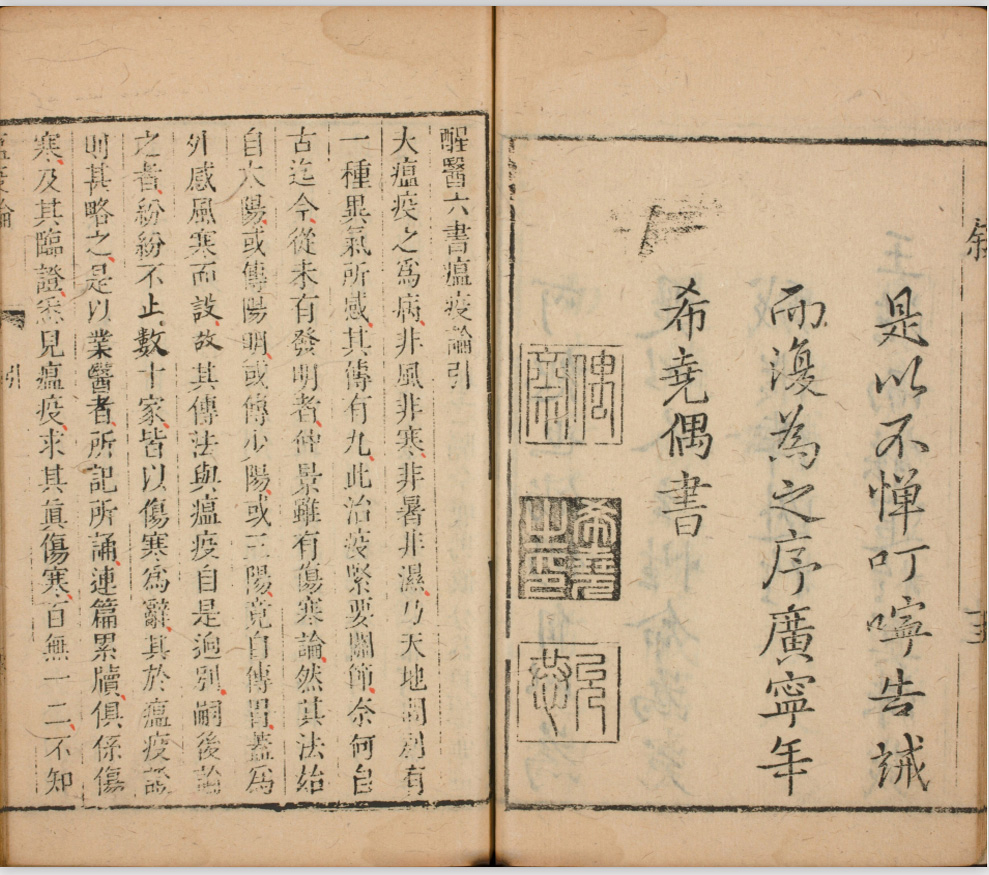 敘
是以不憚叮嚀告誡
而復為之序廣寧年
希堯偶書
五
醒醫六書瘟疫論引
夫瘟疫之為病非風非寒非暑非濕乃天地間別有
一種異氣所感其傳有九此治疫緊要關節奈何自
古迄今從未有發明者仲景雖有傷寒論然其法始
自太陽或傳陽明或傳少陽或三陽竟自傳胃蓋為
外感風寒而設故其傳法與瘟疫自是逈別嗣後論
之者紛紛不止數十家皆以傷寒為辭其於瘟疫證
則甚略之是以業醫者所記所誦連篇累牘俱係傷
寒及其臨證悉見瘟疫求其眞傷寒百無一二不知
瘟疫論
引